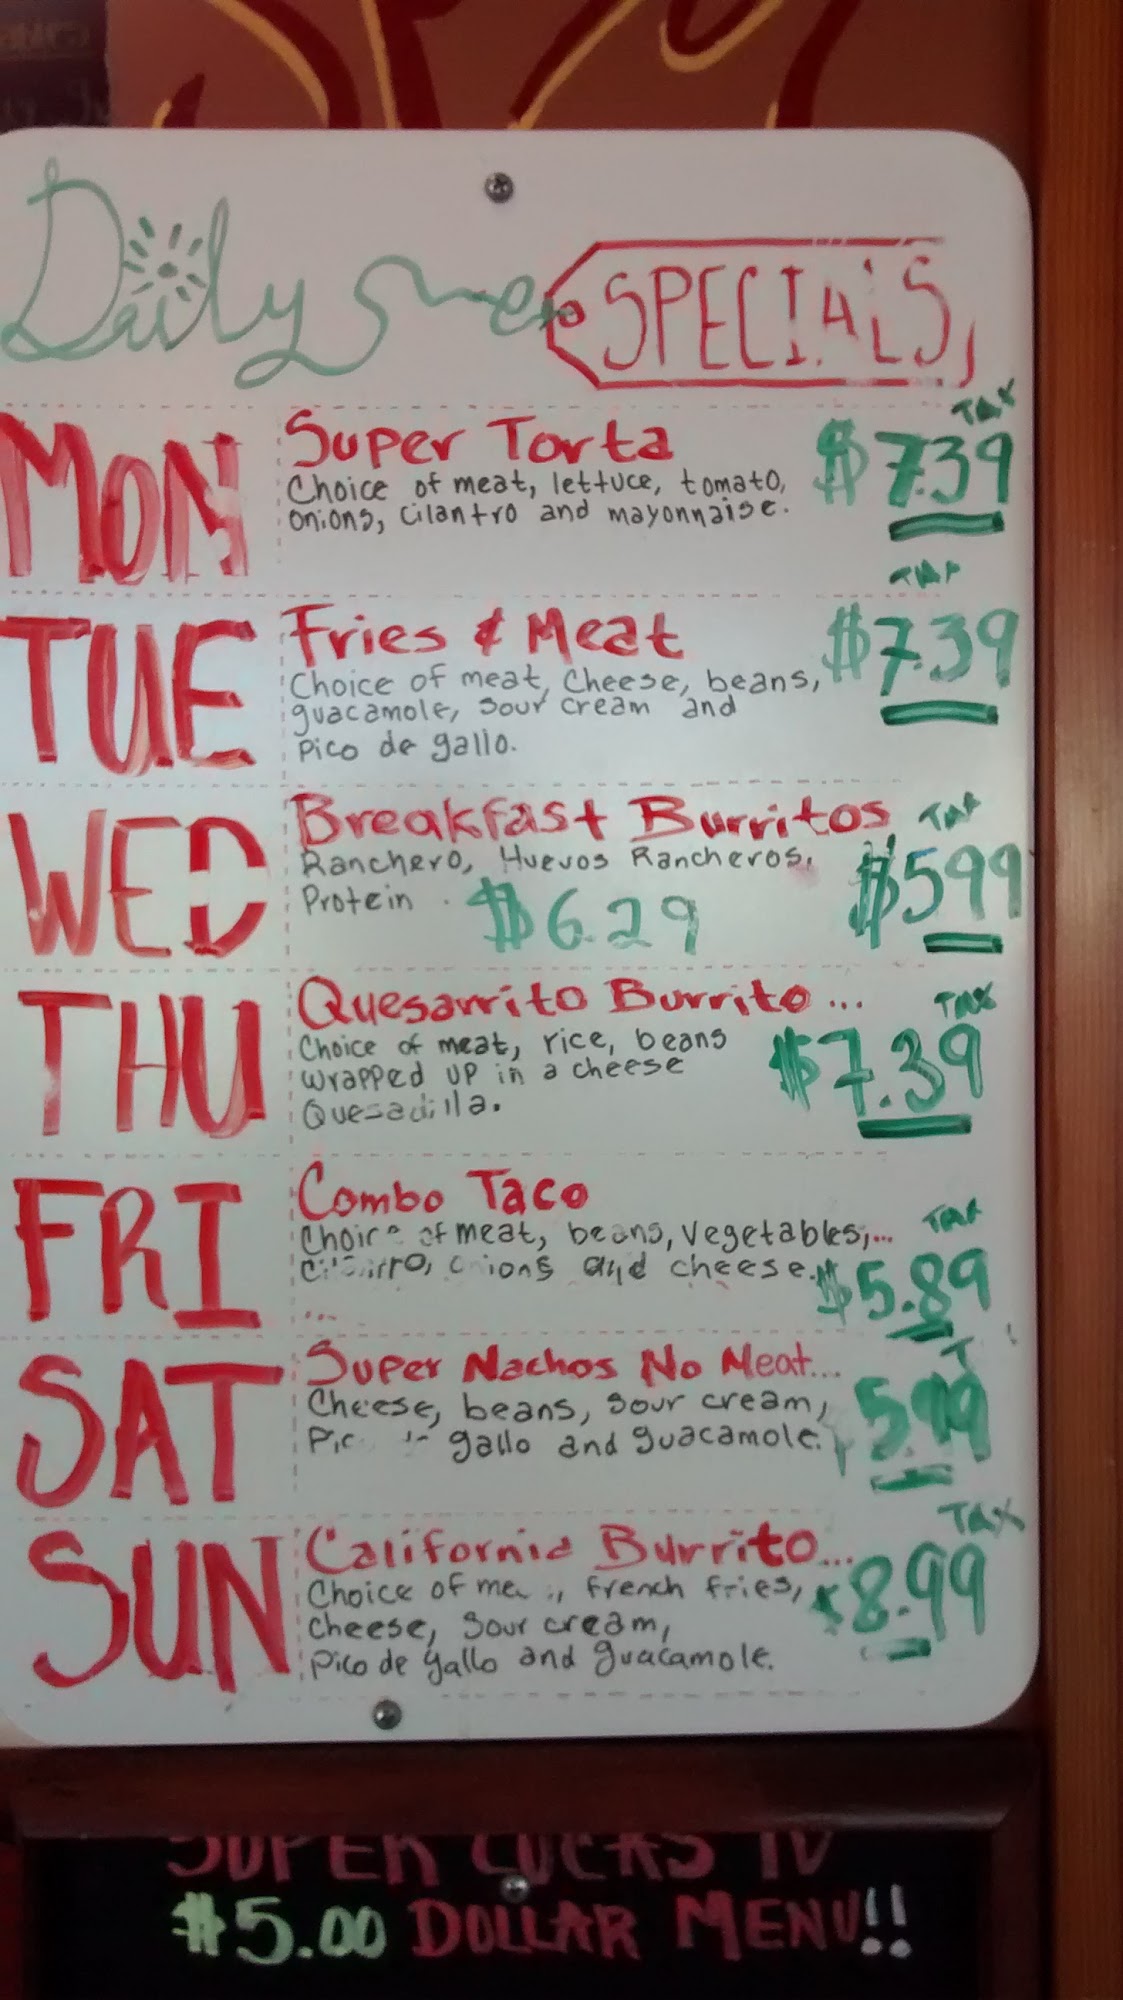 Daily SPECIALS
MON
Super Torta
TAX
$7.39
Choice of meat, lettuce, tomato,
onions, cilantro and mayonnaise.
TUE
Fries & Meat
TAX
$7.39
Choice of meat, Cheese, beans,
guacamole, sour cream and
Pico de gallo.
WED
Breakfast Burritos
TAX
Ranchero, Huevos Rancheros,
$599
Protein
$6.29
THU
Quesarrito Burrito...
TAX
Choice of meat, rice, beans
$7.39
wrapped up in a cheese
Quesadilla.
FRI
Combo Taco
Choice of meat, beans, vegetables,...
TAX
onions and cheese.
$5.89
...
SAT
Super Nachos No Meat...
T
Cheese, beans, sour cream,
5.99
gallo and guacamole.
SUN
California Burrito...
TAX
Choice of french fries,
8.99
cheese, sour cream,
Pico de gallo and guacamole.
SUPER LUCAS IV
$5.00 DOLLAR MENU!!